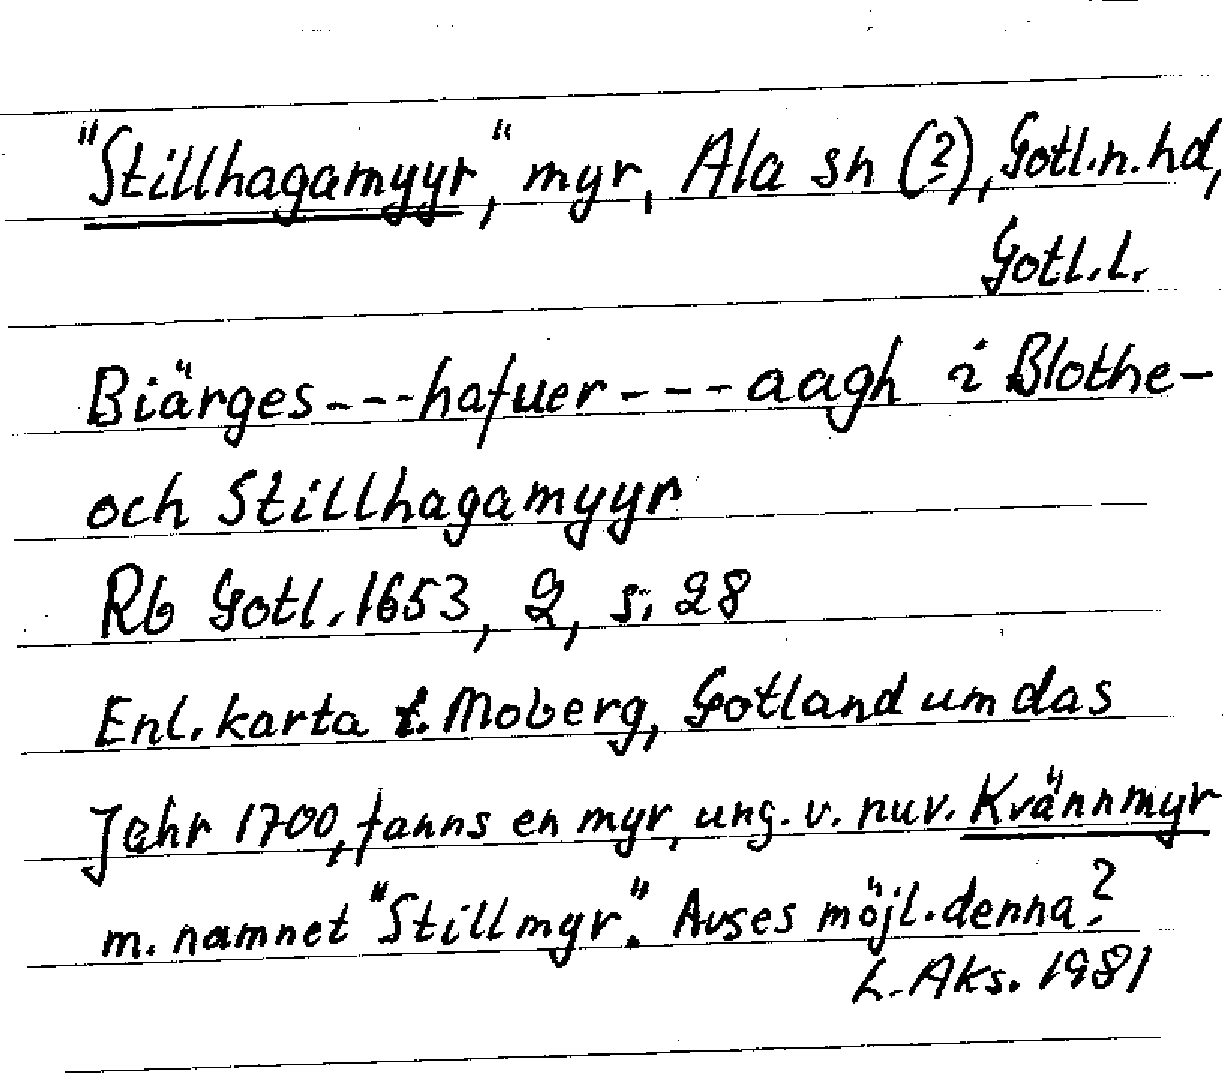 "Stillhagamyyr", myr, Ala sn (?), Gotl.n.hd,
Gotl.l.
Biärges---hafuer---aagh i Blothe-
och Stillhagamyyr
Rb Gotl. 1653, 2, s. 28
Enl. karta t. Moberg, Gotland um das
Jahr 1700, fanns en myr, ung. v. nuv. Kvännmyr
m. namnet "Stillmyr". Avses möjl. denna?
L. Aks. 1981